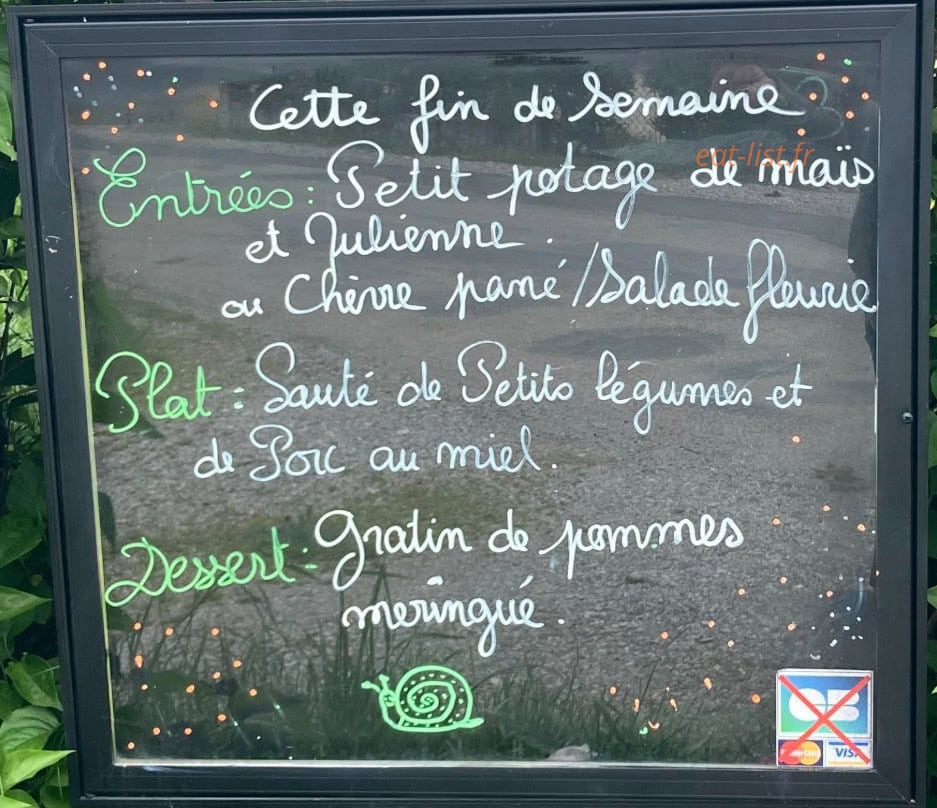 Cette fin de Semaine
eat-list.fr
Entrées : Petit potage de maïs
et Julienne .
ou Chèvre pané / Salade fleurie
Plat : Sauté de Petits légumes et
de Porc au miel .
Dessert : Gratin de pommes
meringué .
CB
MasterCard VISA